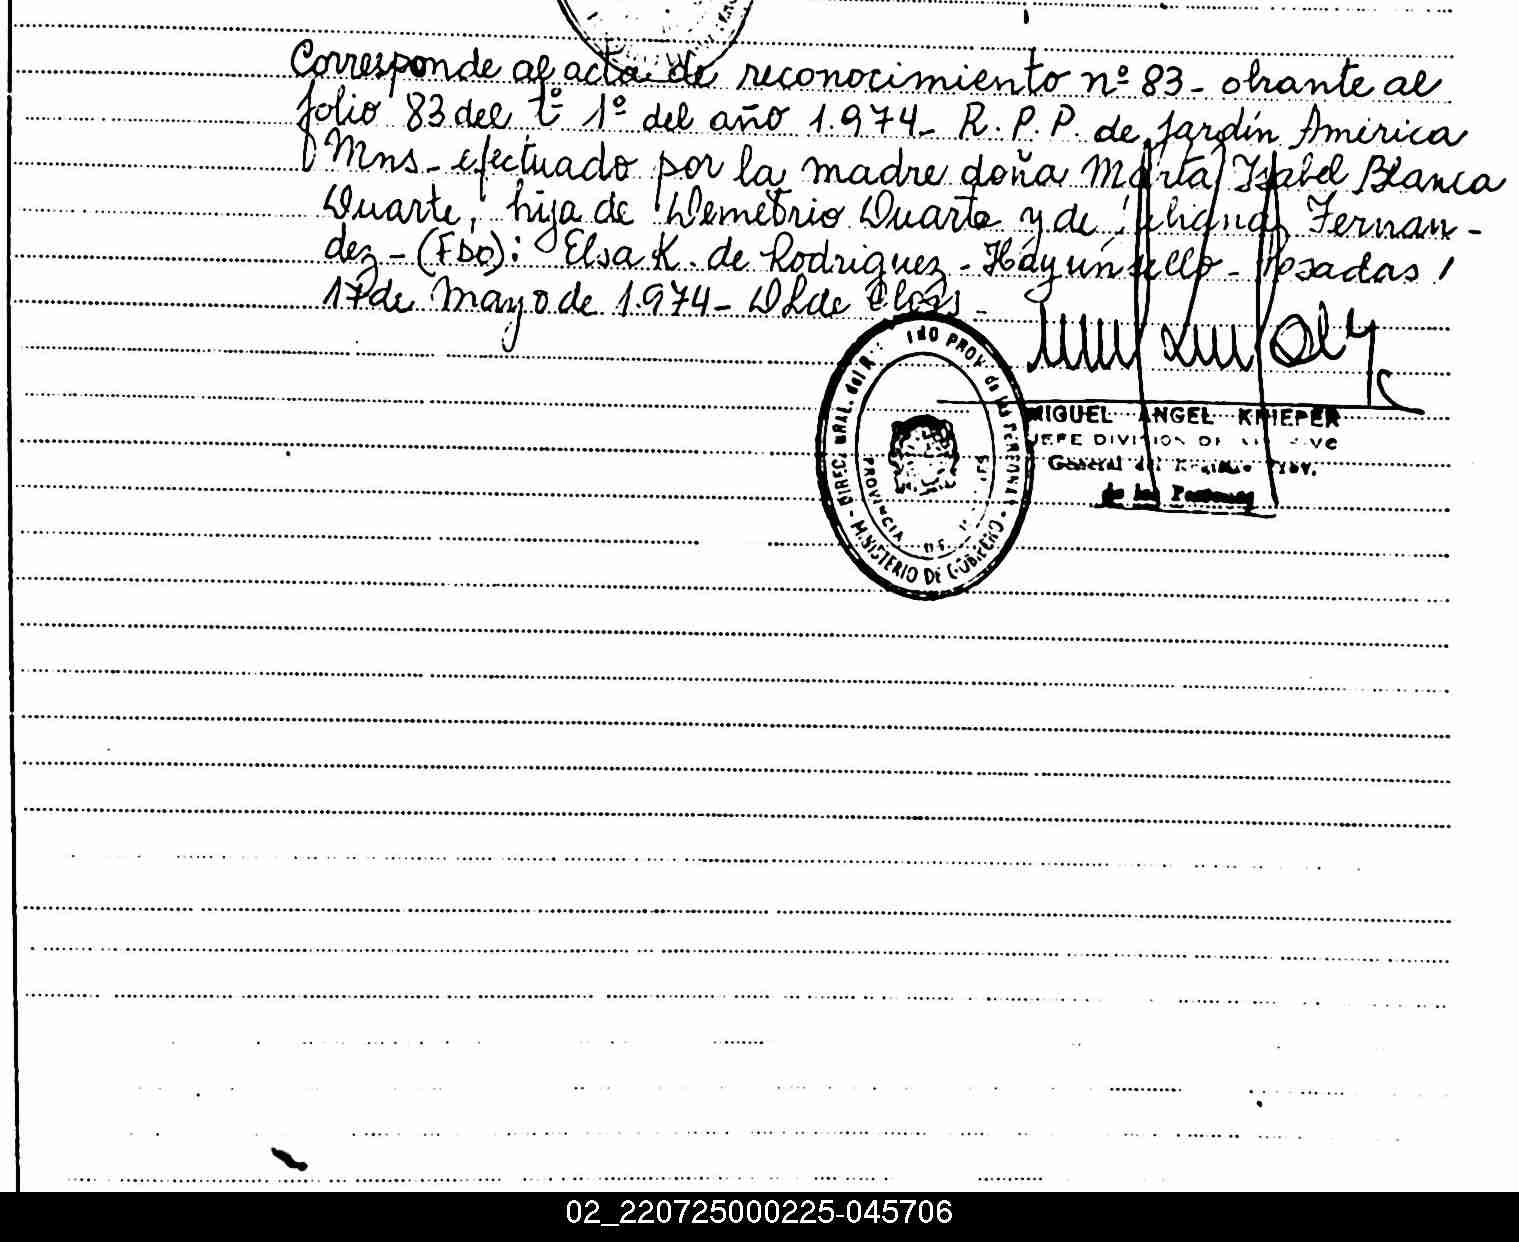 Corresponde al acta de reconocimiento nº 83- obrante al
folio 83 del tº 1º del año 1.974- R.P.P. de Jardín América
Mns- efectuado por la madre doña Marta Isabel Blanca
Duarte, hija de Demetrio Duarte y de Juliana Fernan-
dez- (FDO): Elsa K. de Rodriguez- Hay un sello- Posadas,
17 de Mayo de 1.974-
DIREC. GRAL. del PROV. de las PERSONAS - MINISTERIO DE GOBIERNO -
PROVINCIA DE
MIGUEL ANGEL KRIEPER
JEFE DIVISION
General del Registro Prov.
de las Personas
02_220725000225-045706